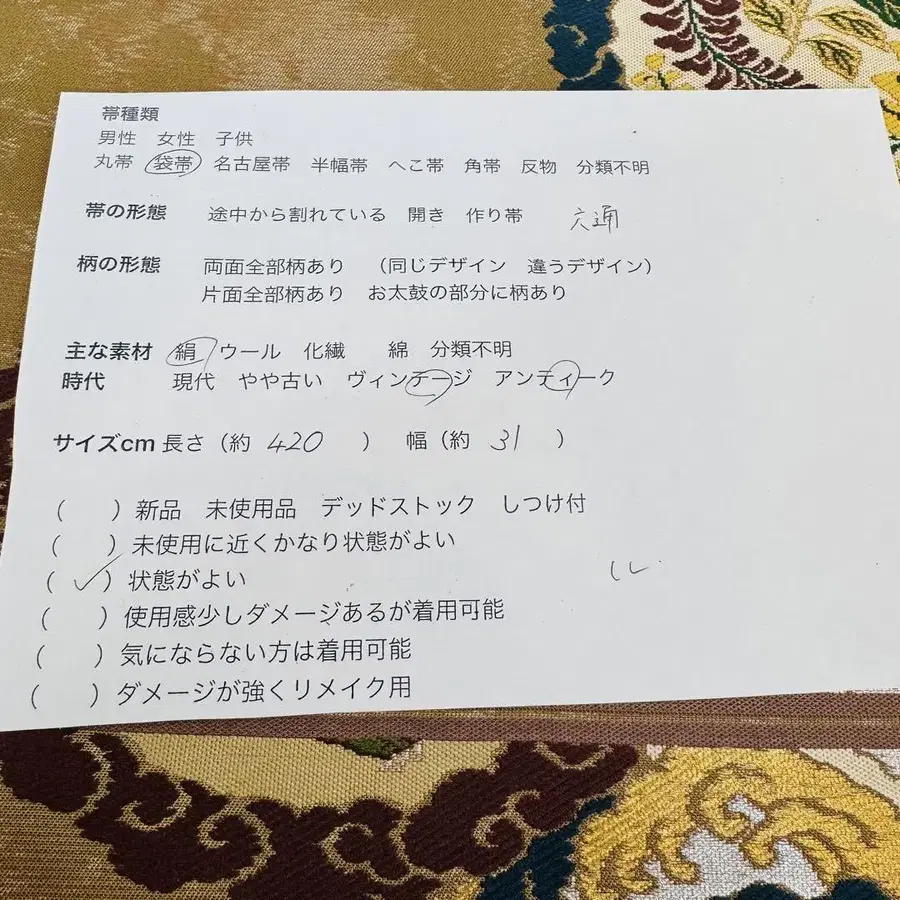 帯種類
男性 女性 子供
丸帯 袋帯 名古屋帯 半幅帯 へこ帯 角帯 反物 分類不明
帯の形態 途中から割れている 開き 作り帯 六通
柄の形態 両面全部柄あり （同じデザイン 違うデザイン）
片面全部柄あり お太鼓の部分に柄あり
主な素材 絹 ウール 化繊 綿 分類不明
時代 現代 やや古い ヴィンテージ アンティーク
サイズcm 長さ（約 420 ） 幅（約 31 ）
（ ）新品 未使用品 デッドストック しつけ付
（ ）未使用に近くかなり状態がよい
（✓）状態がよい
（ ）使用感少しダメージあるが着用可能
（ ）気にならない方は着用可能
（ ）ダメージが強くリメイク用